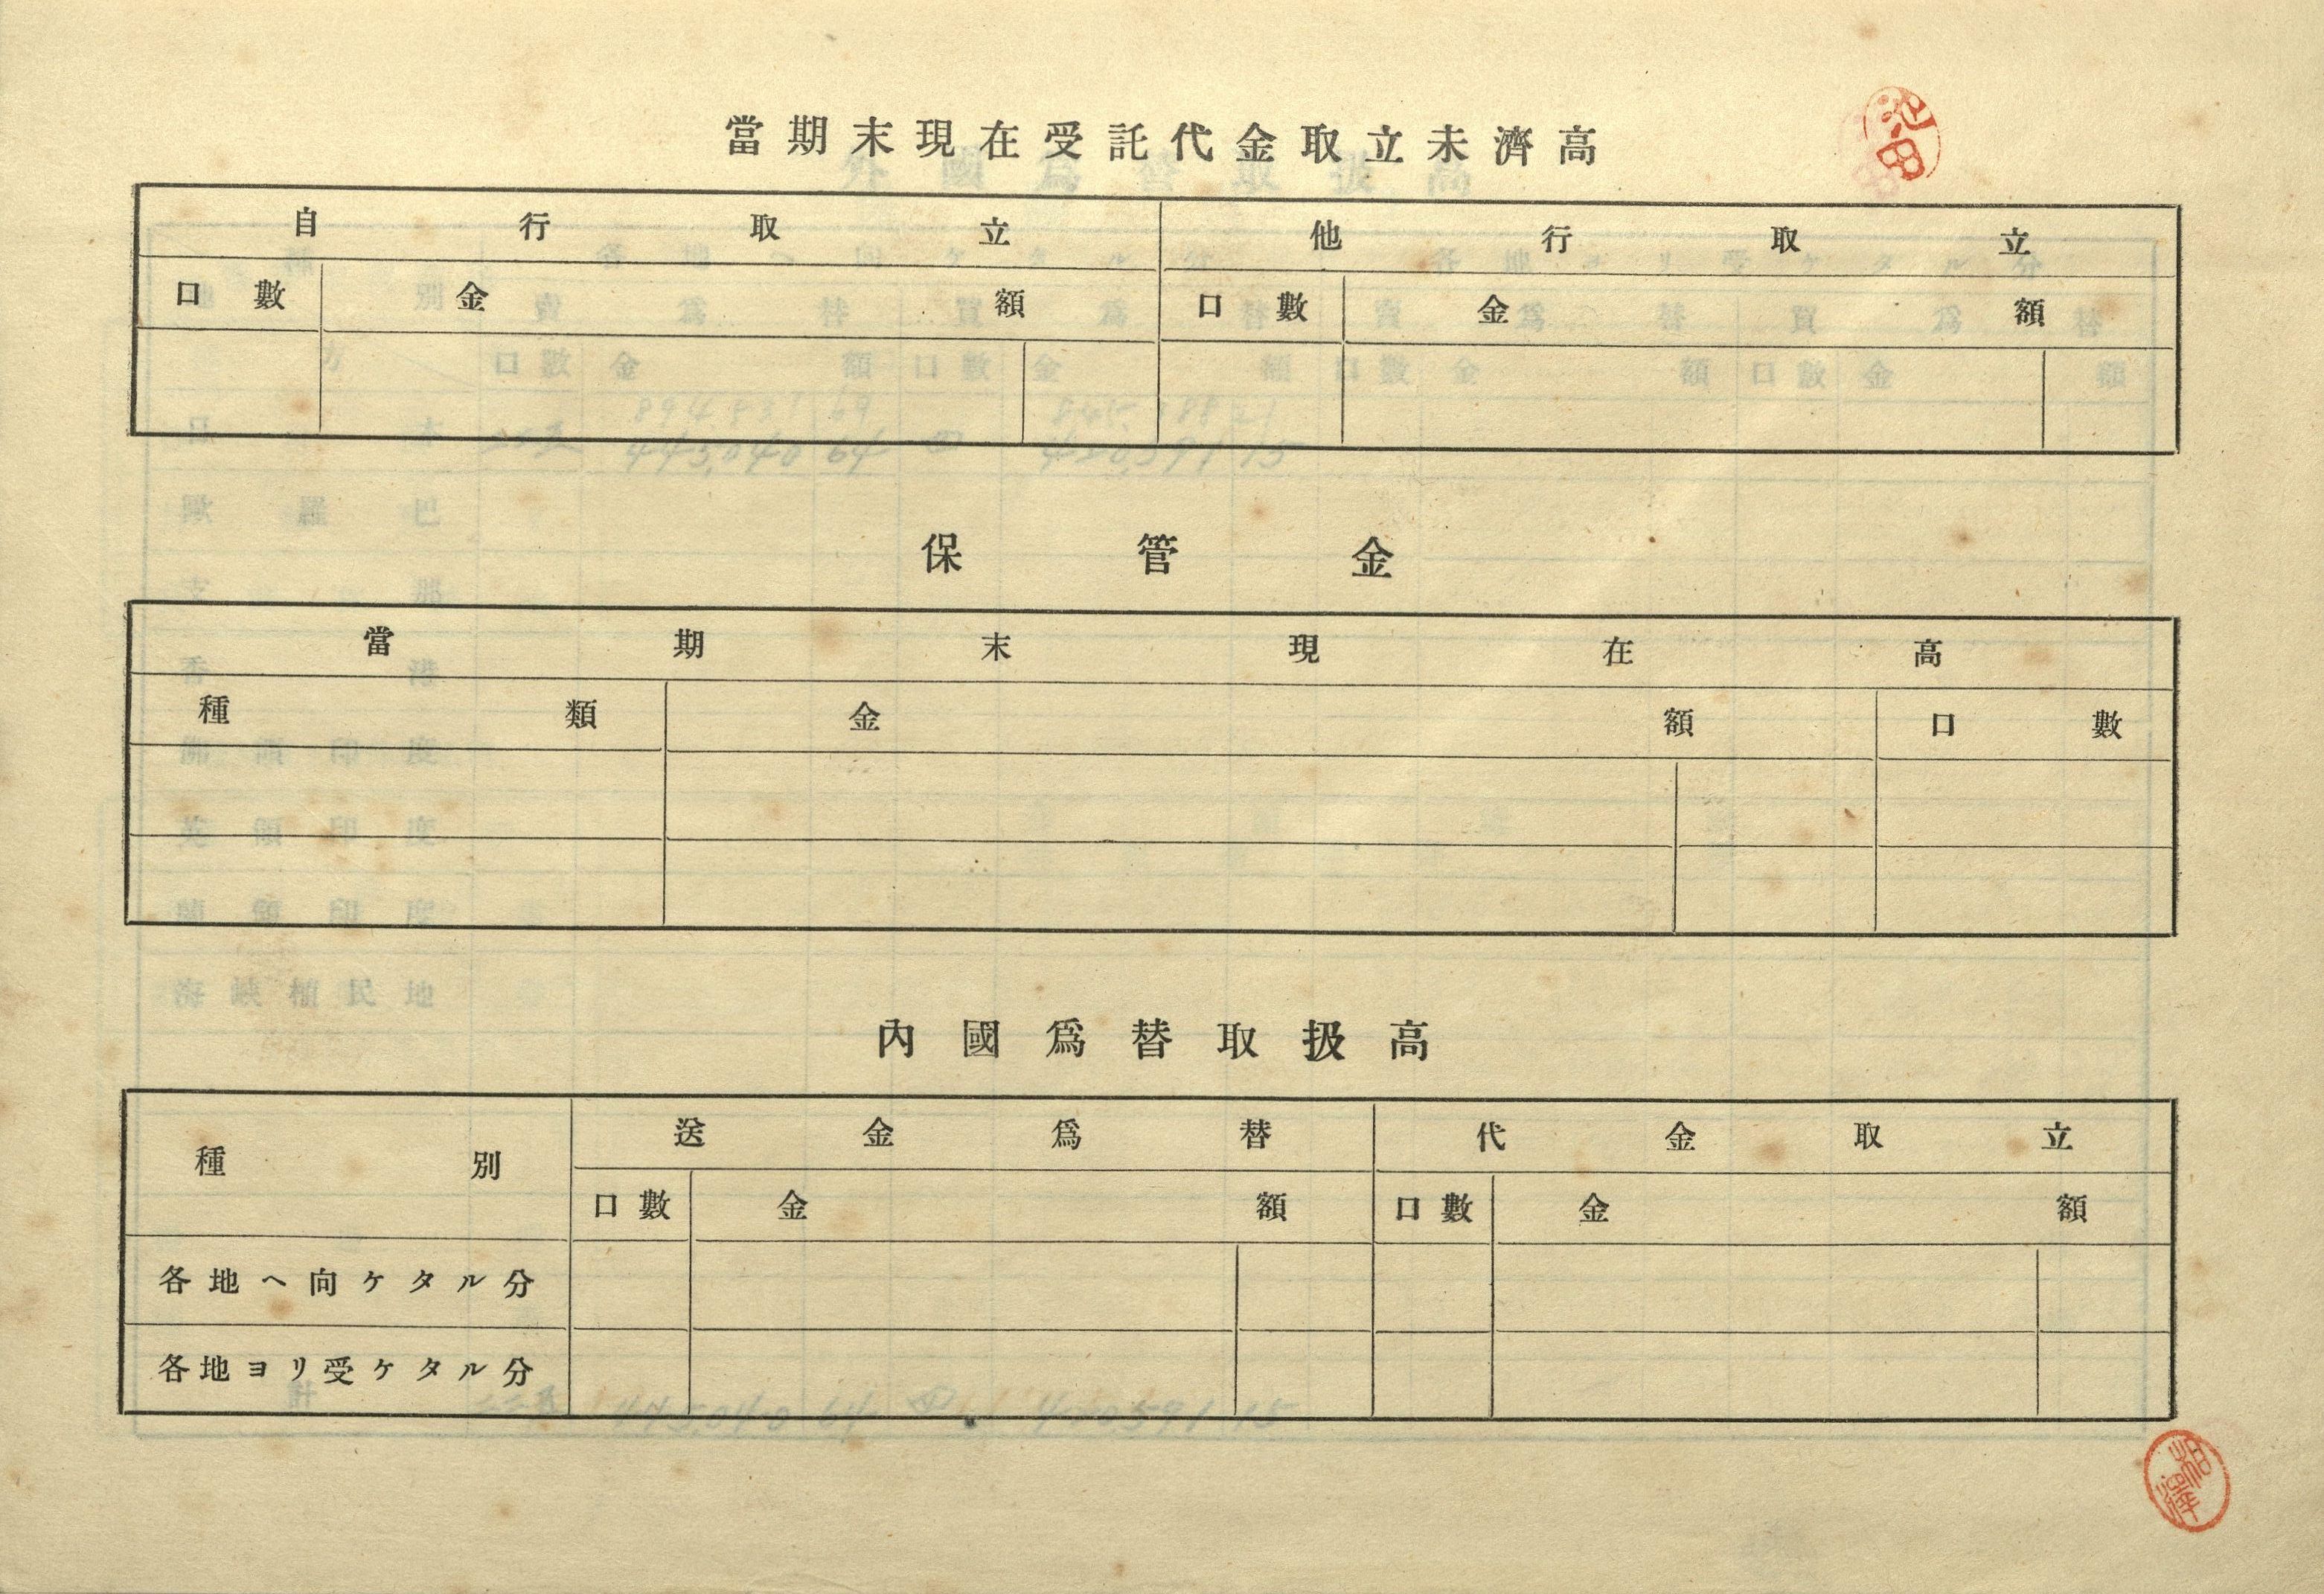 當期末現在受託代金取立未濟高
自行取立 他行取立
口數 金額 口數 金額
保管金
當期末現在高
種類 金額 口數
內國爲替取扱高
種別 送金爲替 代金取立
口數 金額 口數 金額
各地ヘ向ケタル分
各地ヨリ受ケタル分